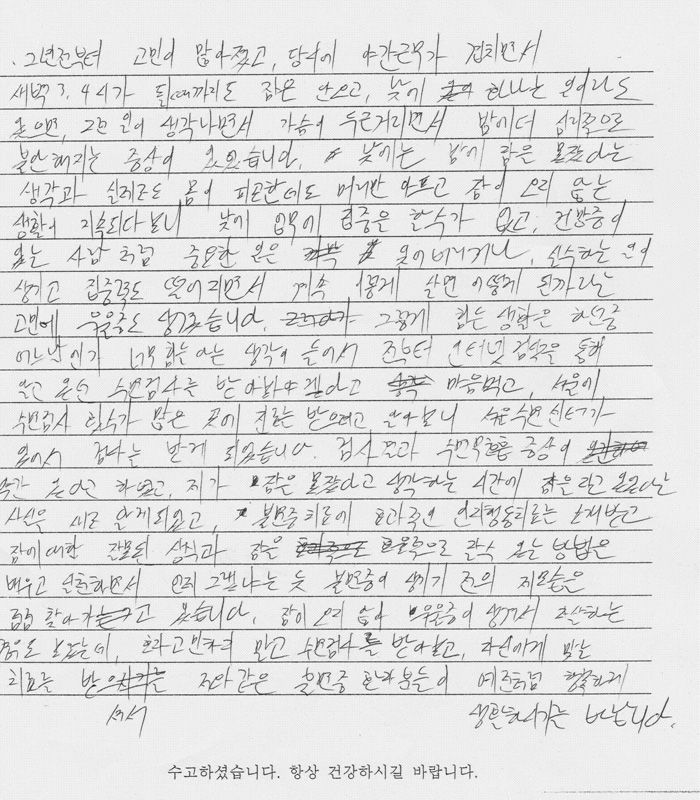 . 그년전부터 고민이 많아졌고, 당시에 야간근무가 겹치면서
새벽 3. 4시가 될때까지도 잠은 안오고, 낮에 하나는 일이라도
있으면, 그런 일이 생각나면서 가슴이 두근거리면서 밤에더 심리적으로
불안해지는 증상이 있었습니다. 낮에는 밤에 잠을 못잤다는
생각과 실제로도 몸이 피곤한데도 머리만 아프고 잠이 오지 않는
생활이 지속되다보니 낮에 업무에 집중은 할수가 없고, 건망증이
있는 사람 처럼 중요한 일은 잊어버리거나, 실수하는 일이
생기고 집중력도 떨어지면서 계속 이렇게 살면 어떻게 된까라는
고민에 우울증도 생겼습니다. 그렇게 힘든 생활은 하던중
어느날인가 너무 힘들다는 생각이 들어서 전부터 인터넷 검색을 통해
알고 있던 수면검사를 받아봐야 겠다고 마음먹고, 서울에
수면검사 횟수가 많은 곳에 진료를 받으려고 알아보니 서울수면센터가
있어서 검사를 받게 되었습니다. 검사결과 수면무호흡 증상이
약간 있다고 하였고, 제가 잠을 못잤다고 생각하는 시간에 잠을 잤고 있었다는
사실을 새로 알게되었고, 불면증치료에 효과적인 인지행동치료를 소개받고
잠에 대한 잘못된 상식과 잠을 효율적으로 잘수 있는 방법을
배우고 실천하면서 언제 그랬냐는 듯 불면증이 생기기 전의 제모습을
점점 찾아가고 있습니다. 잠이 오지 않아 우울증이 생겨서 자살하는
경우도 보았는데, 혼자고민하지 말고 수면검사를 받아보고, 자신에게 맞는
치료를 받으셔서 저와같은 불면증 환자분들이 예전처럼 행복하게
생활하시기를 바랍니다.
수고하셨습니다. 항상 건강하시길 바랍니다.